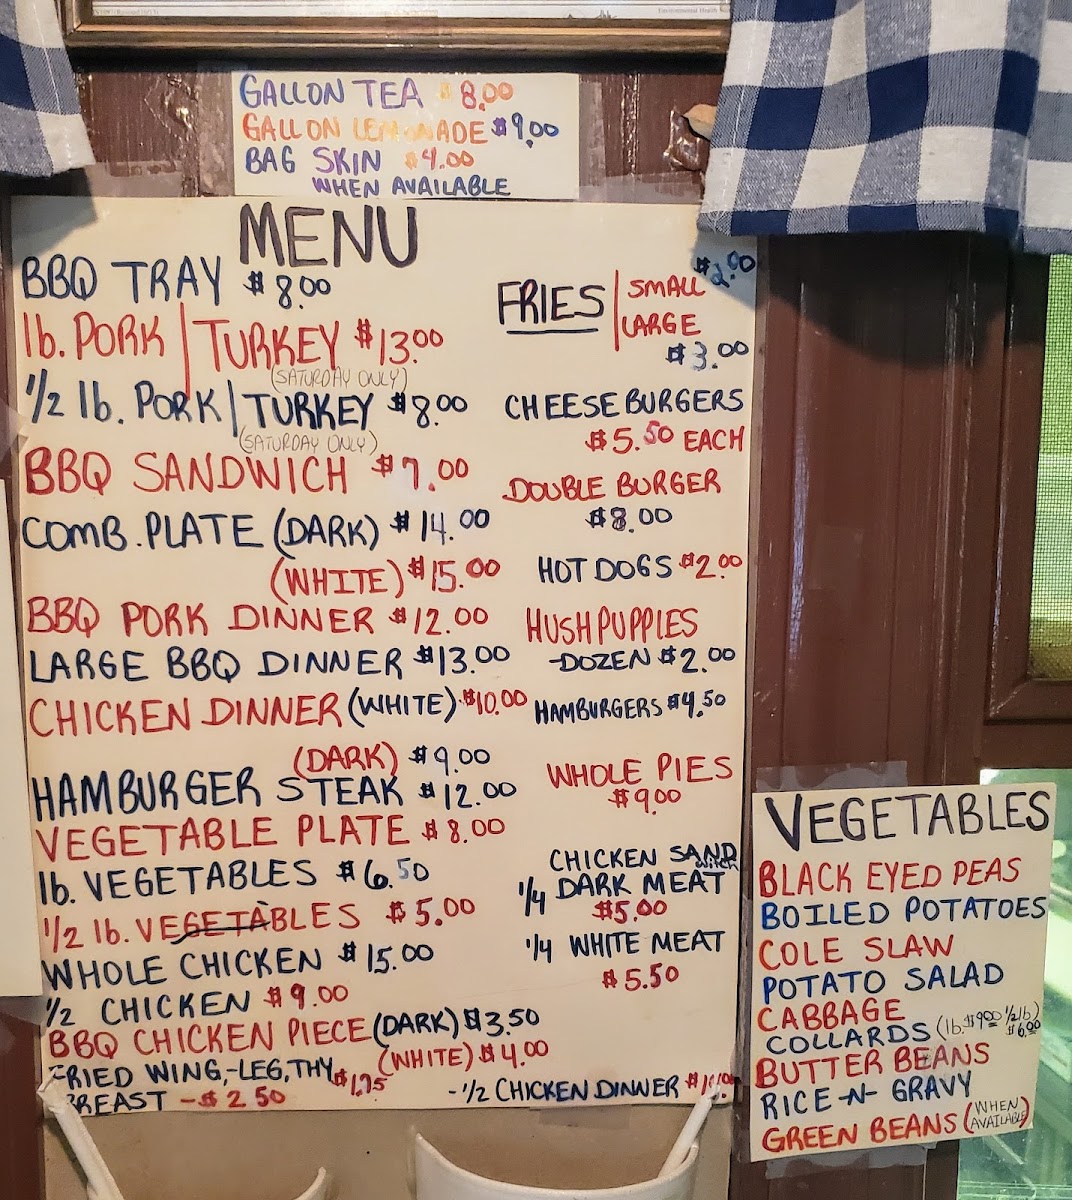 GALLON TEA $8.00
GALLON LEMONADE $9.00
BAG SKIN $4.00
WHEN AVAILABLE
MENU
BBQ TRAY $8.00
1lb. PORK | TURKEY $13.00
(SATURDAY ONLY)
1/2 lb. PORK | TURKEY $8.00
(SATURDAY ONLY)
BBQ SANDWICH $7.00
COMB. PLATE (DARK) $14.00
(WHITE) $15.00
BBQ PORK DINNER $12.00
LARGE BBQ DINNER $13.00
CHICKEN DINNER (WHITE) $10.00
(DARK) $9.00
HAMBURGER STEAK $12.00
VEGETABLE PLATE $8.00
1b. VEGETABLES $6.50
1/2 lb. VEGETABLES $5.00
WHOLE CHICKEN $15.00
1/2 CHICKEN $9.00
BBQ CHICKEN PIECE (DARK) $3.50
(WHITE) $4.00
FRIED WING,-LEG,THY $1.75
BREAST - $2.50
$2.00
FRIES | SMALL
LARGE
$3.00
CHEESEBURGERS
$5.50 EACH
DOUBLE BURGER
$8.00
HOT DOGS $2.00
HUSHPUPPIES
-DOZEN $2.00
HAMBURGERS $4.50
WHOLE PIES
$9.00
CHICKEN SANDwitch
1/4 DARK MEAT
$5.00
1/4 WHITE MEAT
$5.50
-1/2 CHICKEN DINNER
VEGETABLES
BLACK EYED PEAS
BOILED POTATOES
COLE SLAW
POTATO SALAD
CABBAGE
COLLARDS (lb. $9.00 1/2 lb) $6.00
BUTTER BEANS
RICE-N-GRAVY
GREEN BEANS (WHEN AVAILABLE)